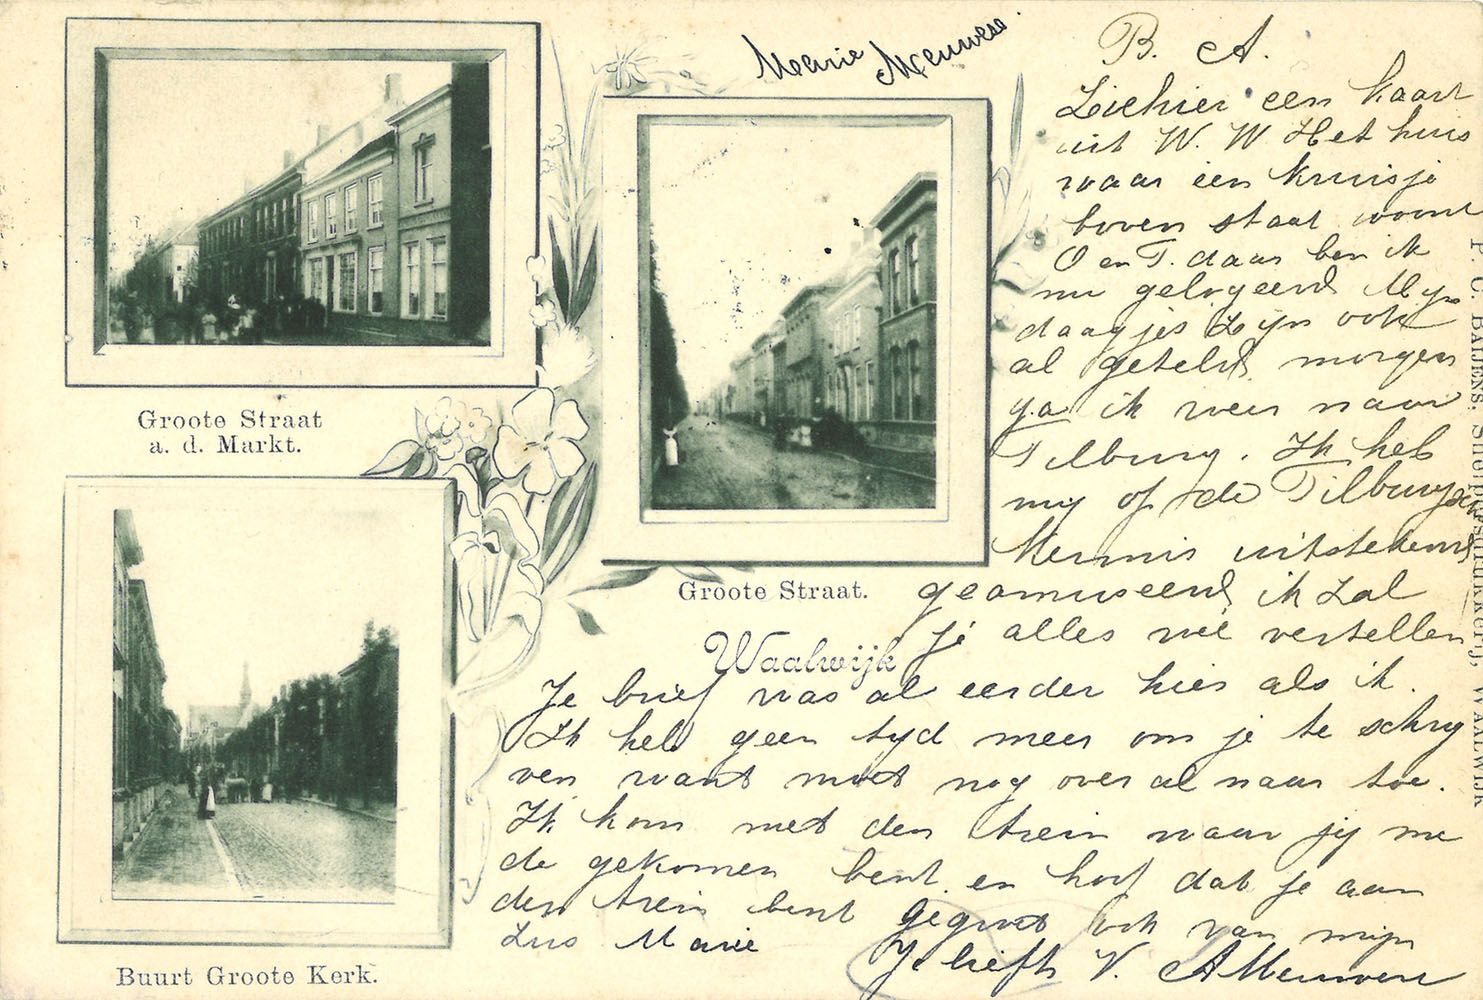 Marie Meuwese
Groote Straat
a. d. Markt.
Groote Straat.
Waalwijk
Buurt Groote Kerk.
B. A.
Ziehier een kaart
uit W. W Het huis
waar een kruisje
boven staat woont
O en T. daar ben ik
nu gelogeerd Myn
daagjes Zijn ook
al geteld morgen
ga ik weer naar
Tilburg. Ik heb
my op de Tilburgsche
Kermis uitstekend
geamuseerd, ik zal
je alles wel vertellen
Je brief was al eerder hier als ik.
Ik heb geen tyd meer om je te schry
ven want moet nog over al naar toe.
Ik kom met den trein waar jy me
de gekomen bent en hoop dat je aan
den trein bent gegroet ook van mijn
Zus Marie
Je liefh. V. AMeuwese
P. C. BAIJENS. Snelpersdrukkerij, WAALWIJK